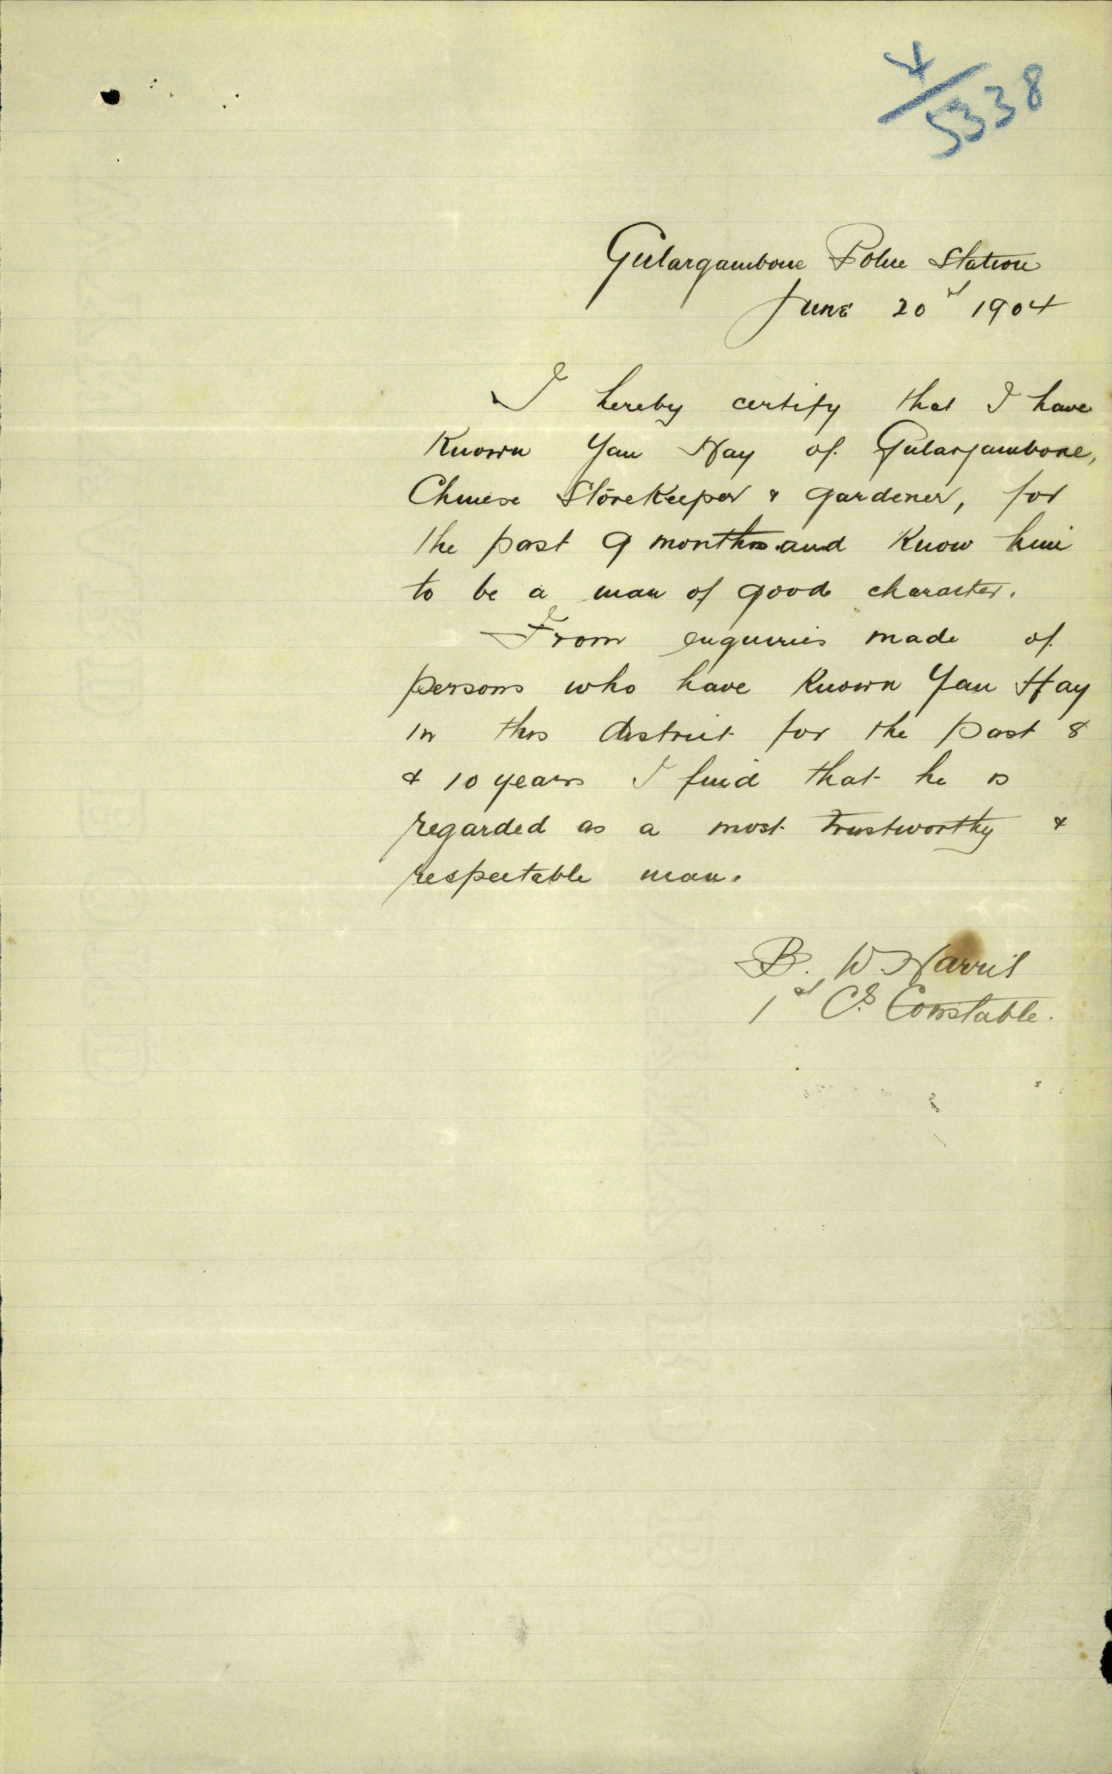 4/5338
Gulargambone Police Station
June 20d 1904
I hereby certify that I have
Known Yan Hay of Gulargambone,
Chinese Storekeeper & gardener, for
the past 9 months and Know him
to be a man of good character.
From enquiries made of
persons who have Known Yan Hay
in this district for the past 8
& 10 years I find that he is
regarded as a most trustworthy &
respectable man.
B. W Harris
1st Cs Constable.